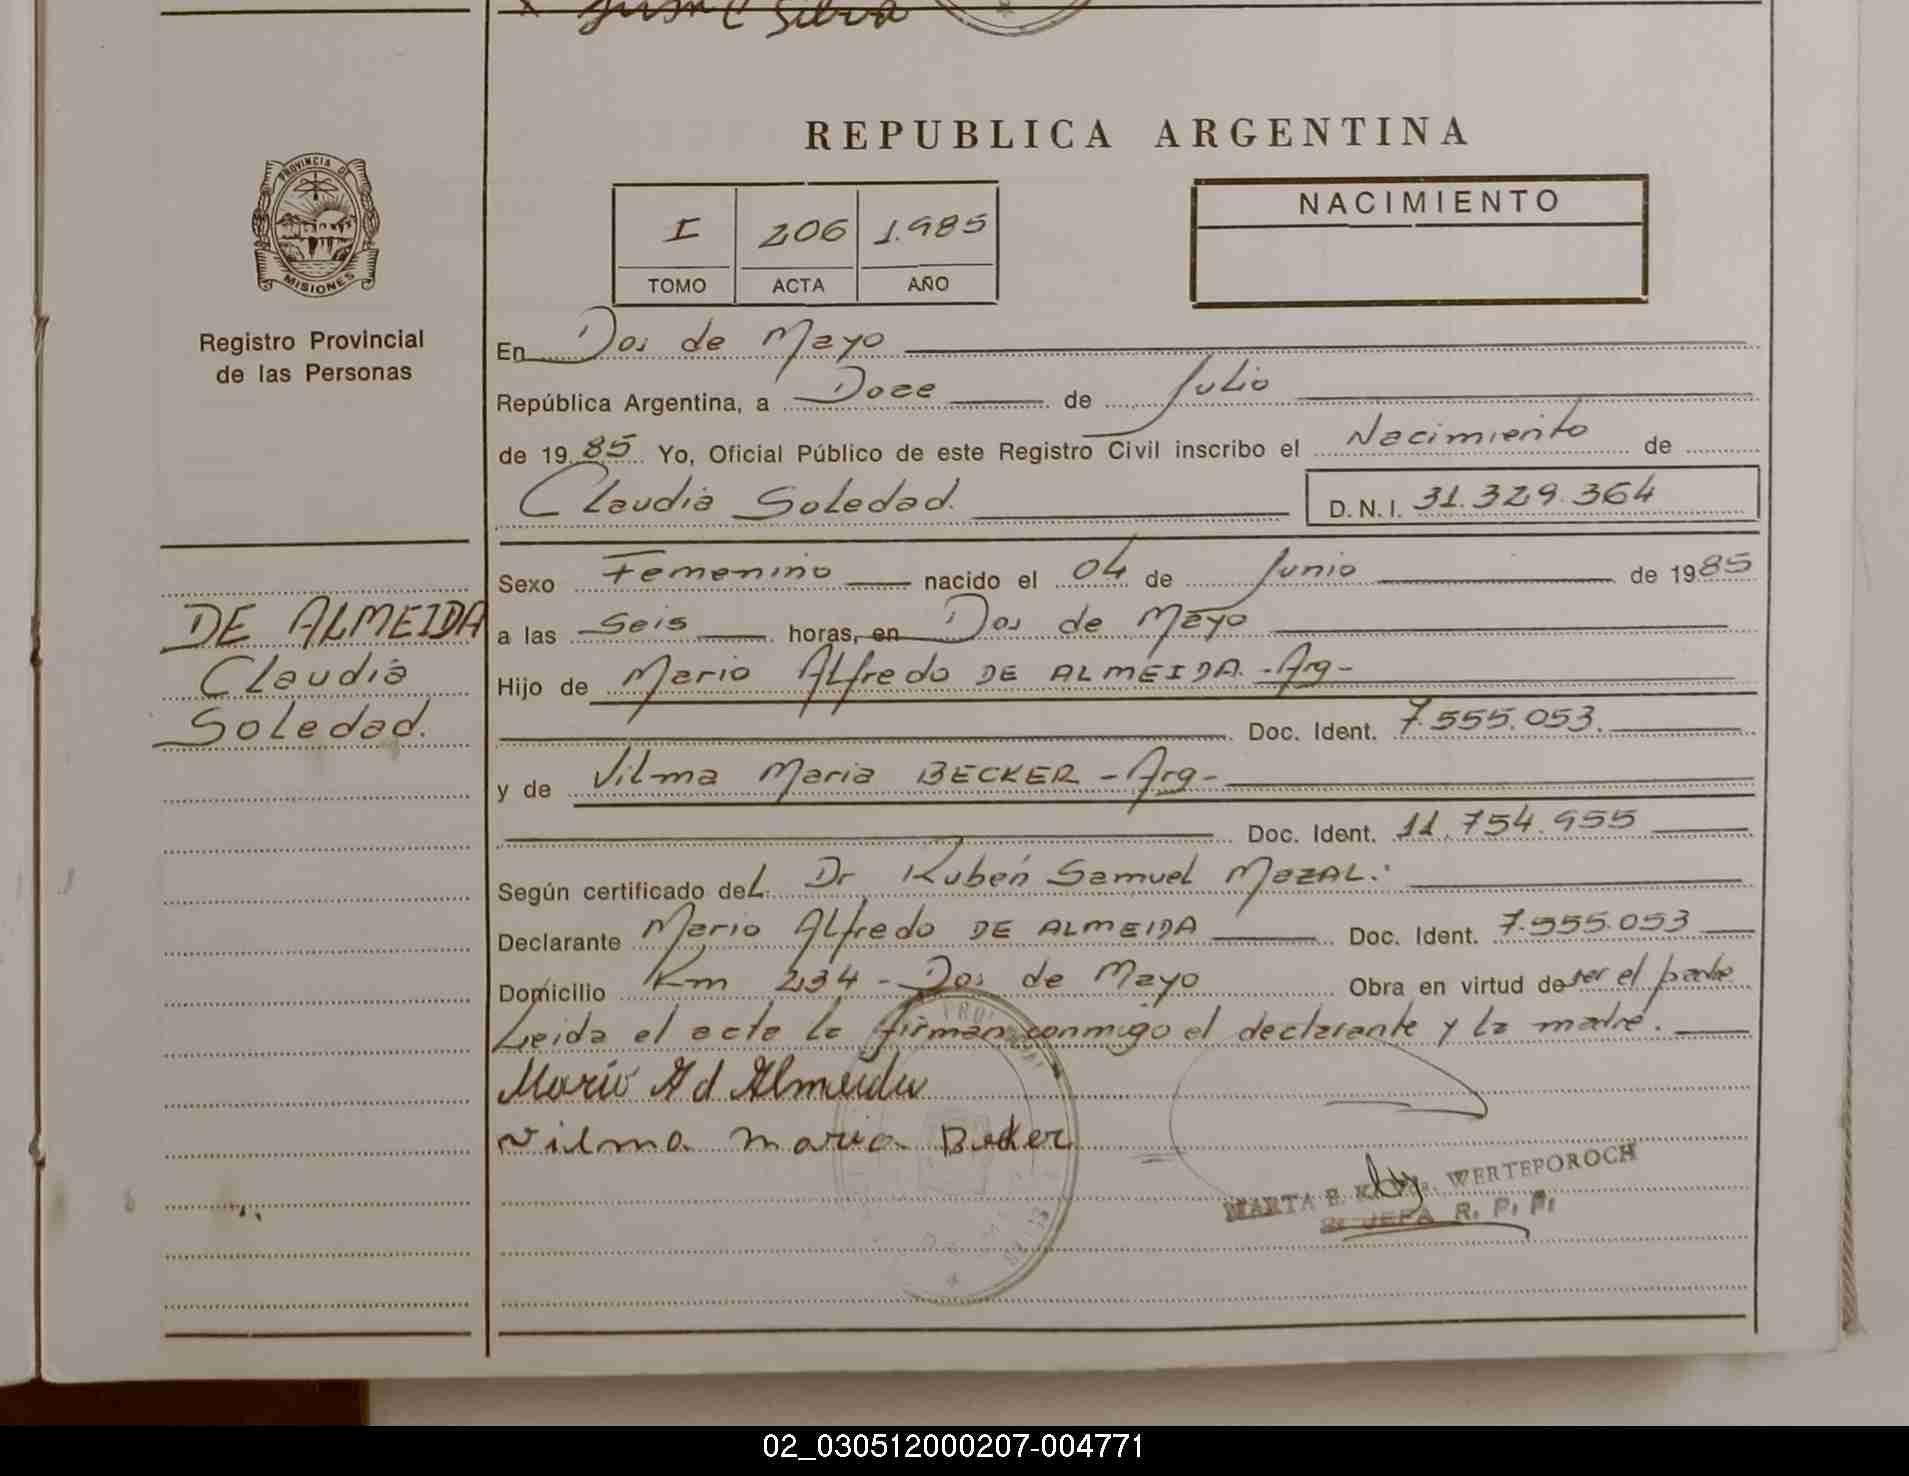 x Juan C Silva
REPUBLICA ARGENTINA
PROVINCIA DE
MISIONES
Registro Provincial
de las Personas
I 206 1.985
TOMO ACTA AÑO
NACIMIENTO
En Dos de Mayo
República Argentina, a Doce de Julio
de 1985 Yo, Oficial Público de este Registro Civil inscribo el Nacimiento de
Claudia Soledad. D.N.I. 31.329.364
DE ALMEIDA
Claudia
Soledad.
Sexo Femenino nacido el 04 de Junio de 1985
a las Seis horas, en Dos de Mayo
Hijo de Mario Alfredo DE ALMEIDA -Arg-
Doc. Ident. 7.555.053.
y de Vilma Maria BECKER -Arg-
Doc. Ident. 11.754.955
Según certificado del Dr Rubén Samuel MAZAL.
Declarante Mario Alfredo DE ALMEIDA Doc. Ident. 7.555.053
Domicilio Km 234 - Dos de Mayo Obra en virtud de ser el padre
Leida el acta la firman conmigo el declarante y la madre.
Mario A d Almeida
Vilma Maria Becker
MARTA E. WERTEPOROCH
JEFA R. P. P.
02_030512000207-004771